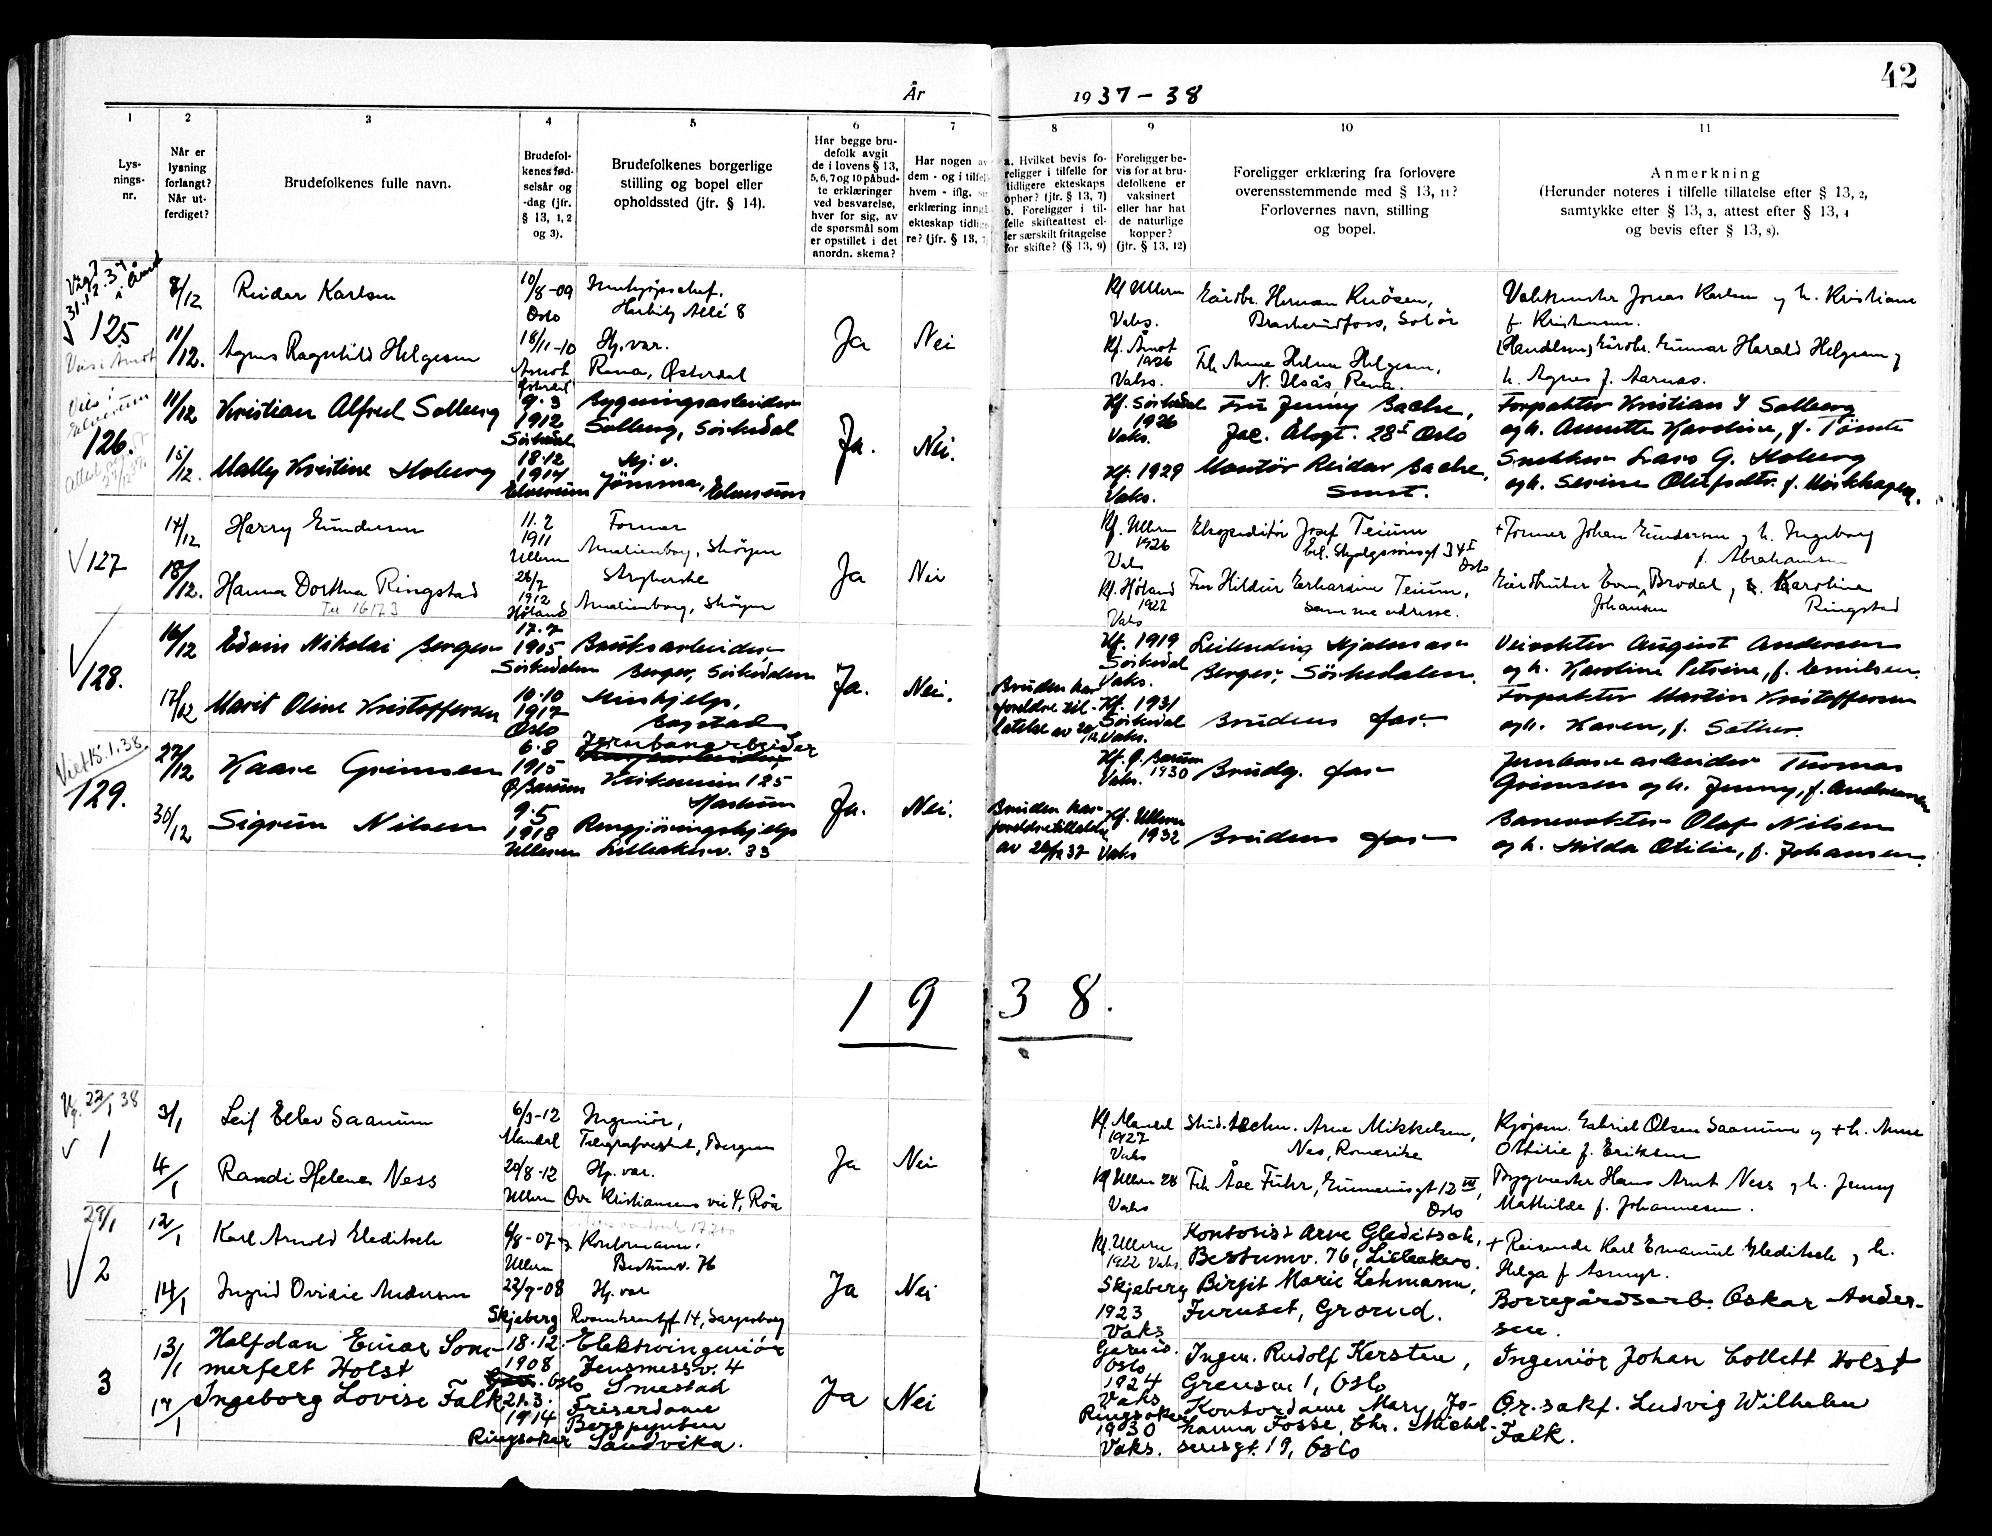 42
År
19 37 - 38
1
2
3
4
5
6
7
8
9
10
11
Lys-
nings-
nr.
Når er
lysning
forlangt?
Når ut-
ferdiget?
Brudefolkenes fulle navn.
Brudefol-
kenes fød-
selsår og
-dag (jfr.
§ 13, 1, 2
og 3).
Brudefolkenes borgerlige
stilling og bopel eller
opholdssted (jfr. § 14).
Har begge bru-
defolk avgit
de i lovens § 13,
5, 6, 7 og 10 påbud-
te erklæringer
ved besvarelse,
hver for sig, av
de spørsmål som
er opstillet i det
anordn. skema?
Har nogen av
dem - og i tilfelle
hvem - iflg.
erklæring inngå
ekteskap tidlige
re? (jfr. § 13,
a. Hvilket bevis fo-
religger i tilfelle for
tidligere ekteskaps
ophør? (jfr. § 13, 7)
b. Foreligger i til-
felle skifteattest el-
ler særskilt fritagelse
for skifte? (§ 13, 9)
Foreligger be-
vis for at bru-
defolkene er
vaksinert
eller har hat
de naturlige
kopper?
(jfr. § 13, 12)
Foreligger erklæring fra forlovere
overensstemmende med § 13, 11?
Forlovernes navn, stilling
og bopel.
Anmerkning
(Herunder noteres i tilfelle tillatelse efter § 13, 2,
samtykke efter § 13, 3, attest efter § 13, 4
og bevis efter § 13, 8).
125
8/12
Reidar Karlsen
10/8-09
Oslo
Harbitz Allé 8
Ja
Nei
Kf Ullern
Vaks.
Gårdbr. Herman
Solør
Jonas Karlsen og h. Kristiane
f. Kristensen.
11/12.
Agnes Ragnhild Helgesen
18/11-10
Åmot
Østerdal
Hj. var.
Rena, Østerdal
Kf. Åmot
1926
Vaks.
Frk Anne Helene Helgesen,
Rena.
Gårdbr. Gunnar Harald Helgesen og
h. Agnes f. Aarnæs.
Vies i
Elverum
126.
11/12
Kristian Alfred Solberg
9.3
1912
Sørkedal
Bygningsarbeider
Solberg, Sørkedal
Ja.
Nei.
Kf. Sørkedal
1926
Vaks.
Fru Jenny Bache,
Jac. Aalsgt. 28 I Oslo
Forpakter Kristian Solberg
og h. Annette Karoline, f. Tømte
15/12.
Mally Kristine Hoberg
18.12
1914
Elverum
Hj. v.
Jömna, Elverum
Kf. 1929
Vaks.
Montør Reidar Bache,
Smst.
Snekker Lars G. Hoberg
og h. Sevine Olufsdtr. f. Mörkhagen.
127
14/12
Harry Gundersen
11.2
1911
Ullern
Former
Amalienborg, Skøyen
Ja
Nei
Kf. Ullern
1926
Vaks
Ekspeditør Josef Teium
Oslo
+ Former Johan Gundersen og h. Ingeborg
f. Abrahamsen
18/12.
Hanna Dorthea Ringstad
26/7
1912
Høland
Strykerske
Amalienborg, Skøyen
Kf. Høland
1927
Vaks
Fru Hildur Gerharsine Teium,
samme adresse.
Gårdbruker Even Brodal, h. Karoline
Johansen
Ringstad
128.
16/12
Edvin Nikolai Berger
17.7
1905
Sörkedalen
Bruksarbeider
Berger, Sörkedalen
Ja.
Nei.
Kf. 1919
Sörkedal
Vaks.
Leilending Hjalmar
Berger, Sörkedalen.
Veivokter August Andersen
og h. Karoline Petrine, f. Emilsen.
17/12
Marit Oline Kristoffersen
10.10
1917
Oslo
Hushjelp,
Bogstad
Bruden har
foreldretil-
latelse av 20/12
Kf. 1931
Sörkedal
Vaks.
Brudens far
Forpakter Martin Kristoffersen
og h. Karen, f. Sother.
Viet 15.1.38.
129.
27/12
Kaare Grimsen
6.8
1915
Ø. Bærum
Jernbanearbeider
125
Ja.
Nei.
Kf. Ø. Bærum
Vaks. 1930
Brudg. far
Jernbanearbeider Thomas
Grimsen og h. Jenny, f. Andresen
30/12
Sigrun Nilsen
9.5
1918
Ullern
Rengjöringshjelp
Lilleakerv. 33
Bruden har
foreldretillatelse
av 28/12 37
Kf. Ullern
1932
Vaks
Brudens far
Banevokter Olaf Nilsen
og h. Hilda Otilie, f. Johansen.
1938.
Vg. 22/1 38
1
3/1
Leif Ellev Saanum
6/3-12
Mandal
Ingeniør,
Bergen
Ja
Nei
Kf Mandal
1927
Vaks
Stud. techn. Arne Mikkelsen,
Nes, Romerike
Kjøpm. Gabriel Olsen Saanum og + h. Anne
Othilie f. Eriksen
4/1
Randi Helene Ness
20/8-12
Ullern
Hj. var.
Ove Kristiansens vei 4, Røa
Kf Ullern 28
Vaks
Frk Åse Fuhr, Gunnerusgt 12 III,
Oslo
Byggmester Hans Arnt Ness og h. Jenny
Mathilde f. Johannesen.
29/1
2
12/1
Karl Arnold Gleditsch
6/8-07
Ullern
Kontormann,
Bestumv. 76
Ja
Nei
Kf. Ullern
1922 Vaks.
Kontorist Arve Gleditsch,
Bestumv. 76, Lilleaker.
+ Reisende Karl Emanuel Gleditsch og h.
Helga f.
14/1
Ingrid Ovidie Andersen
22/9-08
Skjeberg
Hj. var
14, Sarpsborg
Skjeberg
1923
Vaks
Birgit Marie Lehmann,
Furuset, Grorud.
Borregårdsarb. Oskar Ander-
sen.
3
13/1
Halfdan Einar Som-
merfelt Holst
18.12
1908
Oslo
Elektroingeniör
Jensmessv. 4
Smestad
Ja
Nei
Garnis.
Oslo
1924
Vaks
Ingen. Rudolf Kersten,
Grensen 1, Oslo
Ingeniör Johan Collett Holst
17/1
Ingeborg Lovise Falk
21.3.
1914
Ringsaker
Friserdame
Bergpynten
Sandvika.
Ringsaker
1930
Vaks.
Kontordame Mary Jo-
hanna Fosse, Chr. Michel-
sensgt. 19, Oslo
O.r.sakf. Ludvig Wilhelm
Falk.